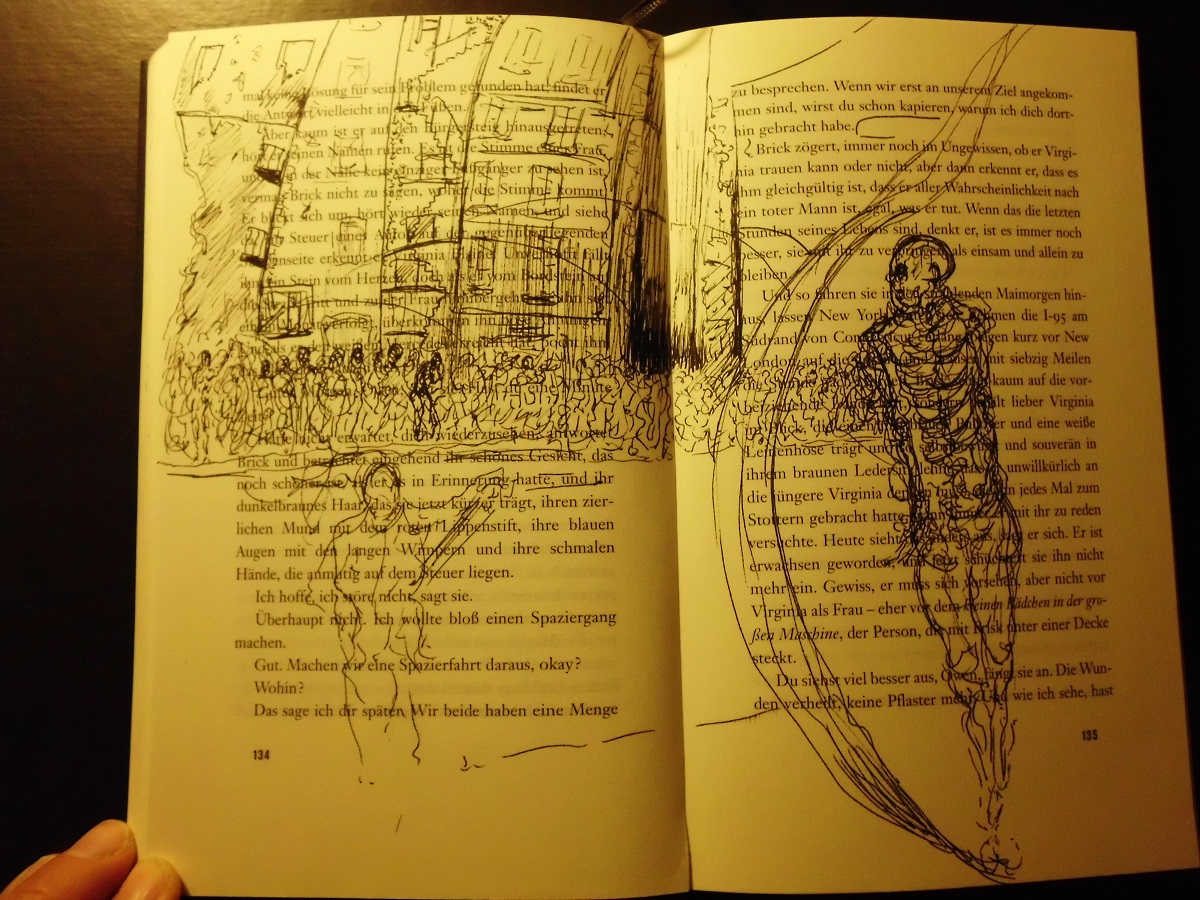 Lösung für sein Problem gefunden hat, findet er
die Antwort vielleicht in
Aber kaum ist er auf den Bürgersteig hinausgetreten,
hört er seinen Namen rufen. Es ist die Stimme einer Frau,
und in der Nähe kein einziger Fußgänger zu sehen ist,
vermag Brick nicht zu sagen, woher die Stimme kommt.
Er blickt sich um, hört wieder seinen Namen, und siehe
da, Steuer eines Autos auf der gegenüberliegenden
erkennt er Virginia Blaine. fällt
ihm ein Stein vom Herzen, doch als er vom Bordstein auf
die tritt und zu der Frau hinübergeht,
überkommen ihn
ihm
eine Minute
Hätte nicht erwartet, dich wiederzusehen, antwortet
Brick und betrachtet eingehend ihr schönes Gesicht, das
noch schöner ist, als er es in Erinnerung hatte, und ihr
dunkelbraunes Haar, das sie jetzt kürzer trägt, ihren zier-
lichen Mund mit dem roten Lippenstift, ihre blauen
Augen mit den langen Wimpern und ihre schmalen
Hände, die anmutig auf dem Steuer liegen.
Ich hoffe, ich störe nicht, sagt sie.
Überhaupt nicht. Ich wollte bloß einen Spaziergang
machen.
Gut. Machen wir eine Spazierfahrt daraus, okay?
Wohin?
Das sage ich dir später. Wir beide haben eine Menge
134
zu besprechen. Wenn wir erst an unserem Ziel angekom-
men sind, wirst du schon kapieren, warum ich dich dort-
hin gebracht habe.
Brick zögert, immer noch im Ungewissen, ob er Virgi-
nia trauen kann oder nicht, aber dann erkennt er, dass es
ihm gleichgültig ist, dass er aller Wahrscheinlichkeit nach
ein toter Mann ist, egal, was er tut. Wenn das die letzten
Stunden seines Lebens sind, denkt er, ist es immer noch
besser, sie mit ihr zu verbringen als einsam und allein zu
bleiben.
Und so fahren sie in den strahlenden Maimorgen hin-
aus, lassen New York hinter sich, nehmen die I-95 am
Südrand von Connecticut entlang, biegen kurz vor New
London auf die und mit siebzig Meilen
die Stunde Brick kaum auf die vor-
beiziehende lieber Virginia
im Blick, die einen und eine weiße
Leinenhose trägt und so und souverän in
ihrem braunen Ledersitz lehnt, dass unwillkürlich an
die jüngere Virginia denken muss, ihn jedes Mal zum
Stottern gebracht hatte, wenn immer er mit ihr zu reden
versuchte. Heute sieht es anders aus, sagt er sich. Er ist
erwachsen geworden, und jetzt schüchtert sie ihn nicht
mehr ein. Gewiss, er muss sich vorsehen, aber nicht vor
Virginia als Frau – eher vor dem kleinen Rädchen in der gro-
ßen Maschine, der Person, die mit Frisk unter einer Decke
steckt.
Du siehst viel besser aus, Owen, fängt sie an. Die Wun-
den verheilt, keine Pflaster mehr. Und wie ich sehe, hast
135